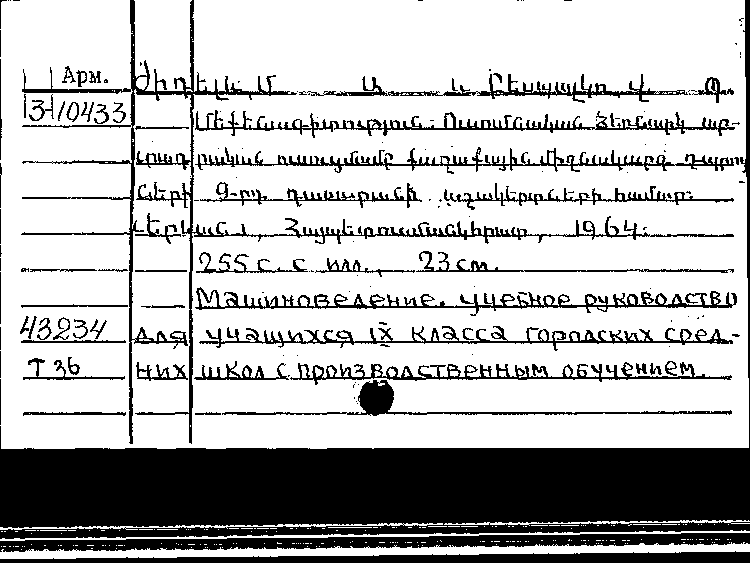 Арм.
Ժիդելև Մ Ա և Բեսպալկո Վ. Պ.
3-10433
Մեքենագիտություն: Ուսումնական ձեռնարկ ար-
տադրական ուսուցմամբ քաղաքային միջնակարգ դպրոց
ների 9-րդ դասարանի աշակերտների համար:
Երևան, Հայպետուսմանկհրատ, 1964:
255 с. с илл., 23 см.
Машиноведение. Учебное руководство
43234 для учащихся IX класса городских сред.-
Т 36 них школ с производственным обучением.